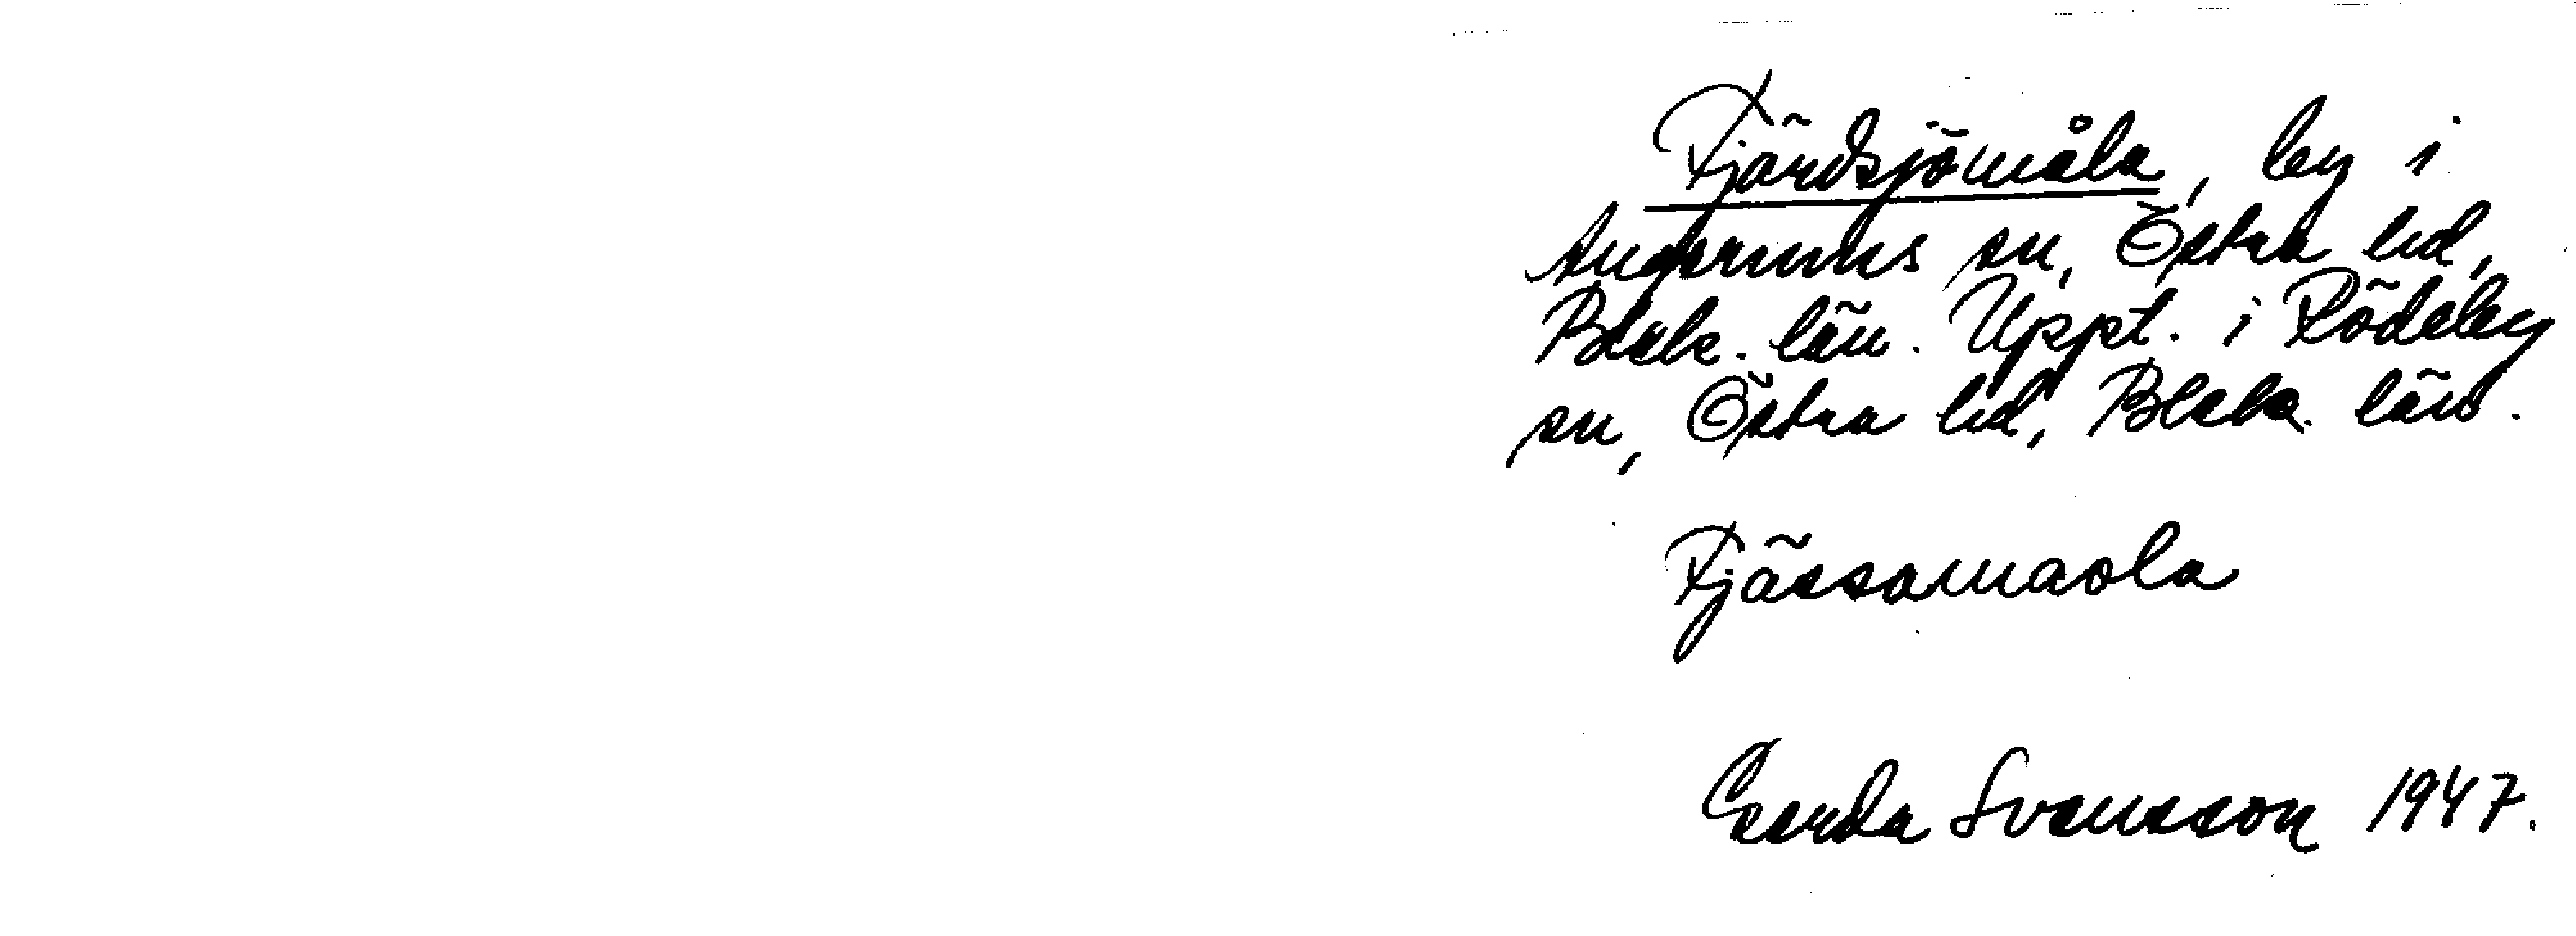 Fjärdsjömåla, by i
Augerums sn, Östra hd,
Blek. län. Uppt. i Rödeby
sn, Östra hd, Blek. län.
Fjässamaola
Gerda Svensson 1947.